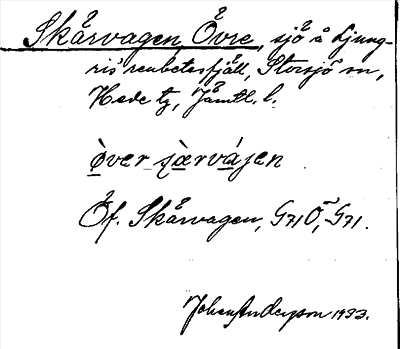 Skårvagen, Övre, sjö å Ljung-
ris renbetesfjäll, Storsjö sn,
Hede tg, Jämtl. l.
òver sʃærvájen
Öf. Skårvagen, G71Ö, G71.
Johan Anderson 1933.